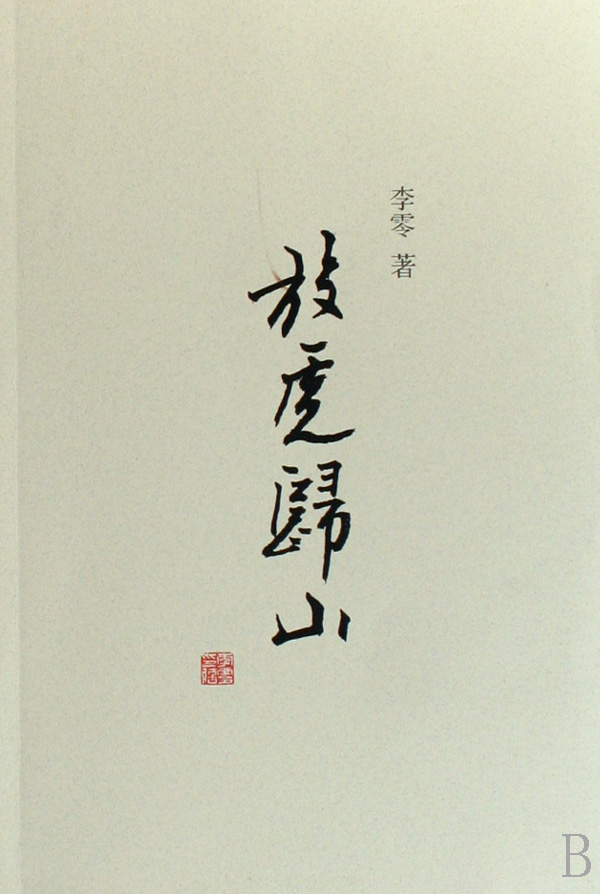 李零 著
放虎歸山
B